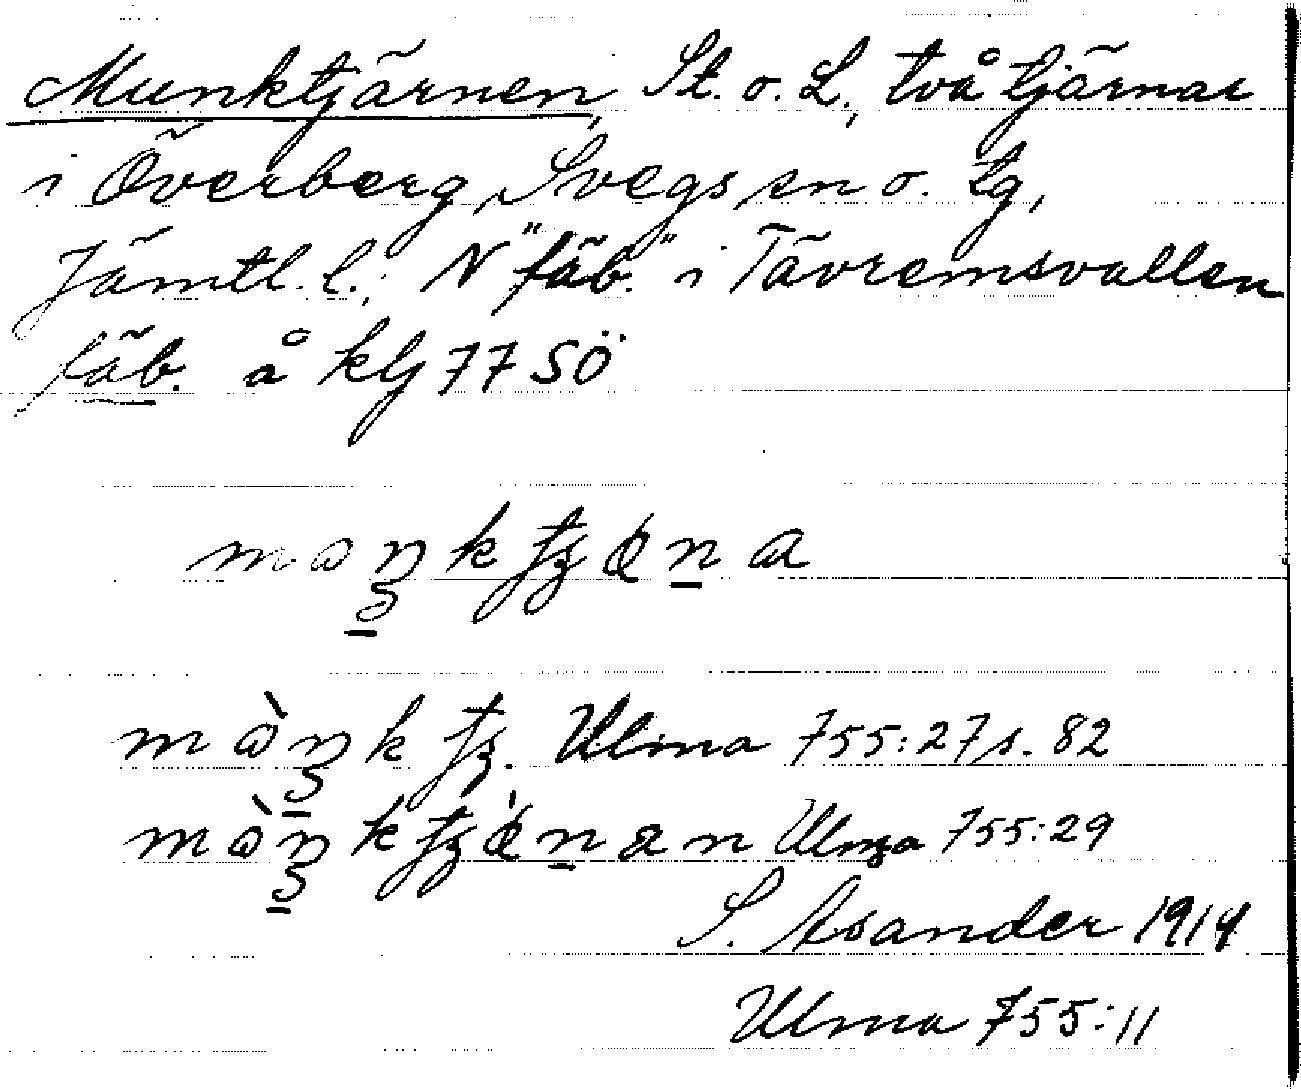 Munktjärnen, St. o. L., två tjärnar
i Överberg, Svegs sn o. tg,
Jämtl. l.; N "fäb." i Tävremsvallen
fäb. å klj 77 SÖ
Ulma 755:27 s. 82
Ulma 755:29
S. Asander 1914
Ulma 755:11